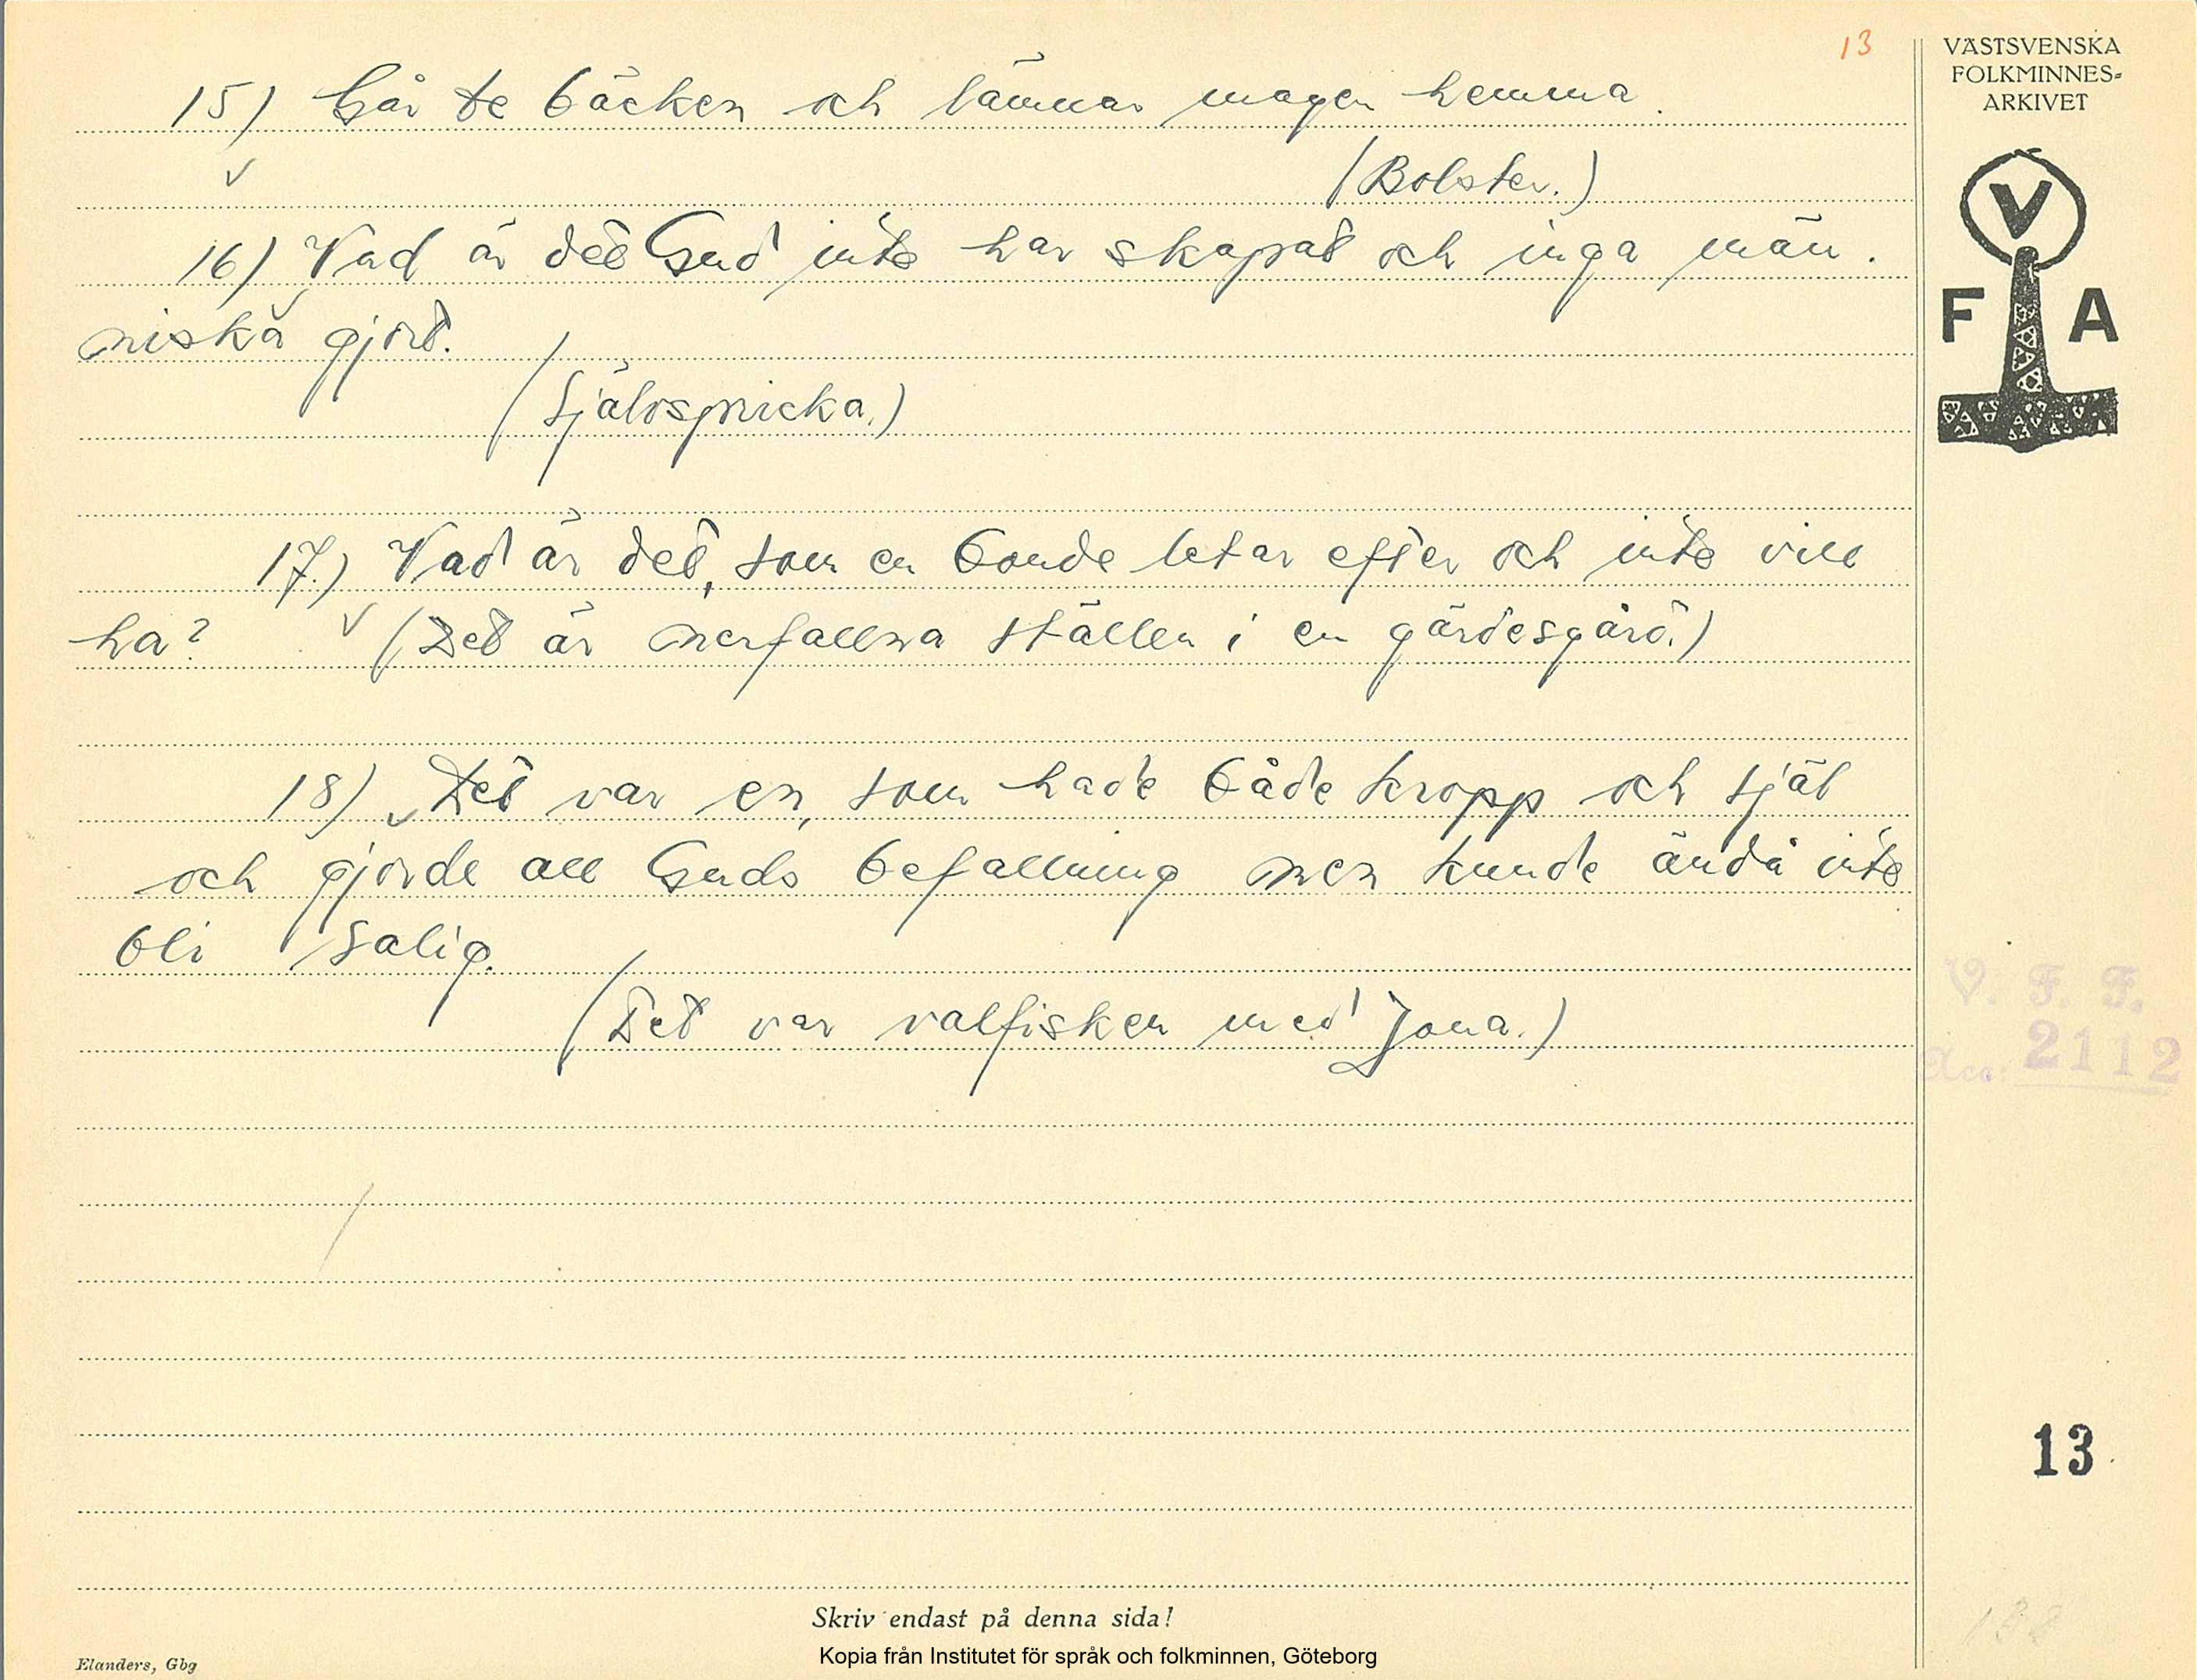 13
VÄSTSVENSKA
FOLKMINNES-
ARKIVET
V
F A
15) Går te bäcken och lämnar magen hemma.
(Bolster.)
16) Vad är det Gud inte har skapat och inga män-
niska gjort.
(Självspricka.)
17.) Vad är det, som en bonde letar efter och inte vill
ha? (Det är nerfallna ställen i en gärdesgård.)
18) Det var en, som hade både kropp och själ
och gjorde all Guds befallning men kunde ändå inte
bli salig.
(Det var valfisken med Jona.)
V. F. F.
Acc: 2112
13
Skriv endast på denna sida!
Kopia från Institutet för språk och folkminnen, Göteborg
Elanders, Gbg